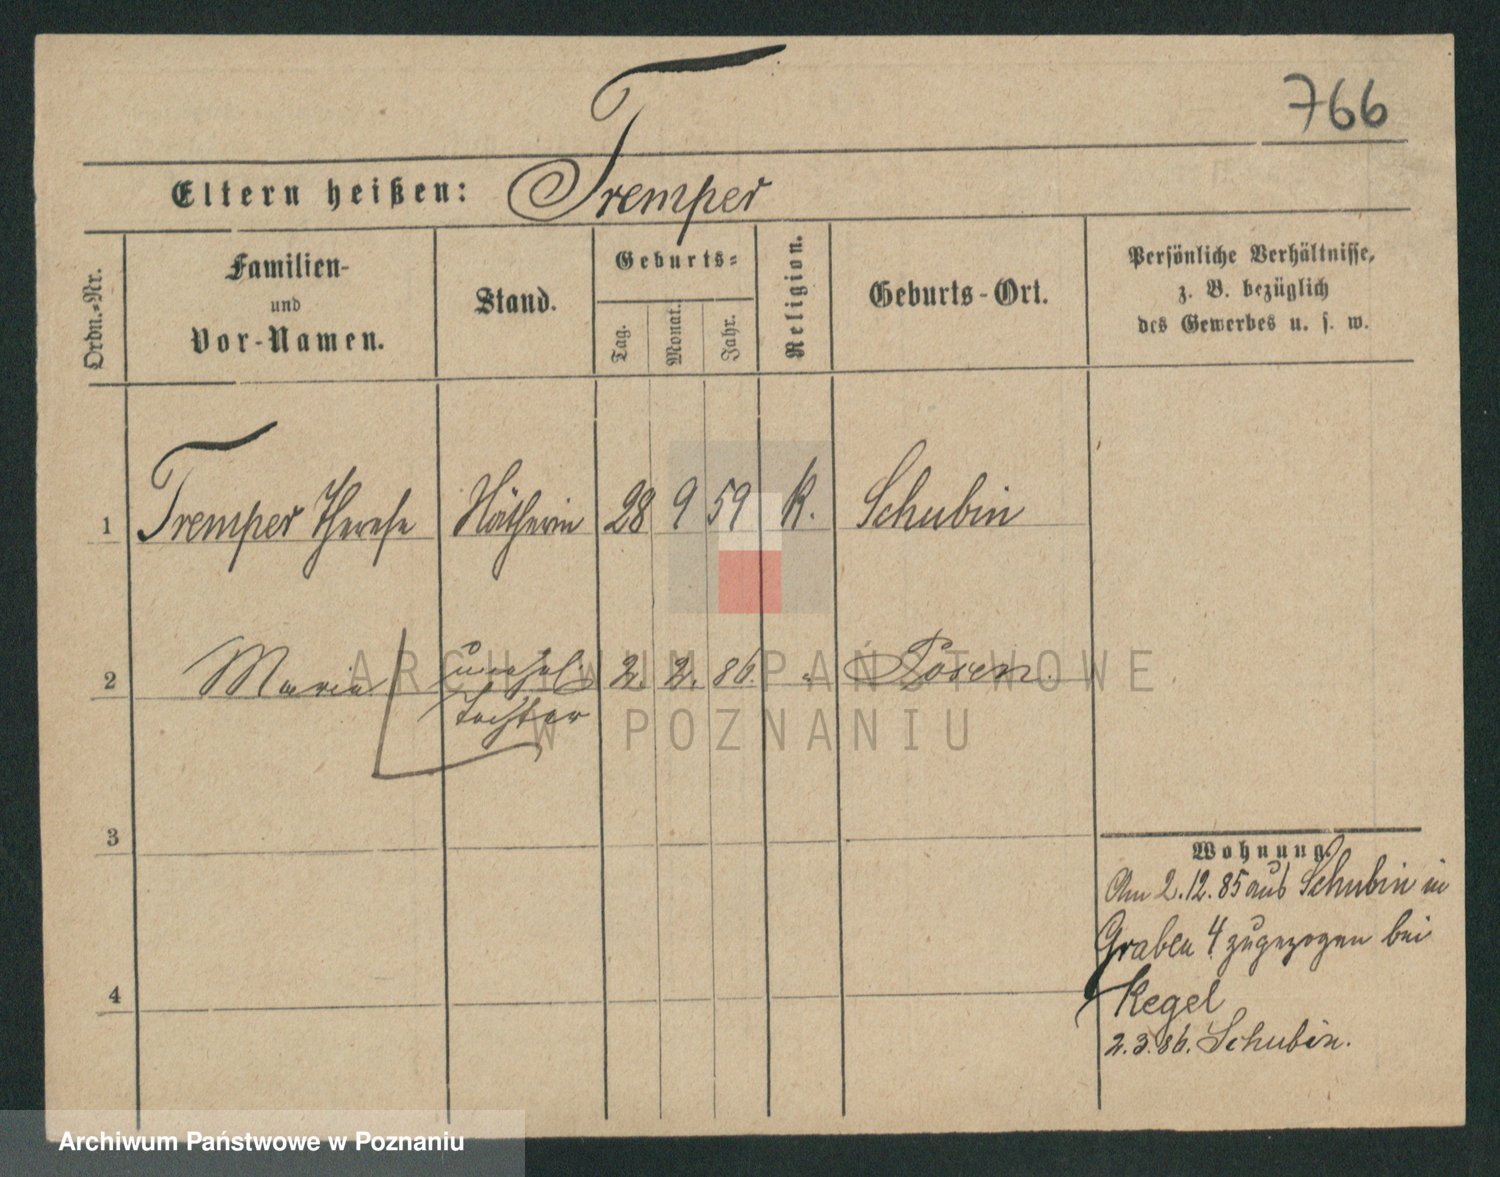 766
Eltern heißen: Tremper
Ordn.-Nr.
Familien-
und
Vor-Namen.
Stand.
Geburts-
Tag.
Monat.
Jahr.
Religion.
Geburts-Ort.
Persönliche Verhältnisse,
z. B. bezüglich
des Gewerbes u. s. w.
1 Tremper Therese Nätherin 28 9 59 K. Schubin
2 Marie unehel. 2. 2. 86. " Posen.
Tochter
ARCHIWUM PAŃSTWOWE
W POZNANIU
3
4
Wohnung.
Am 2.12.85 aus Schubin in
Graben 4 zugezogen bei
Kegel
2.3.86. Schubin.
Archiwum Państwowe w Poznaniu